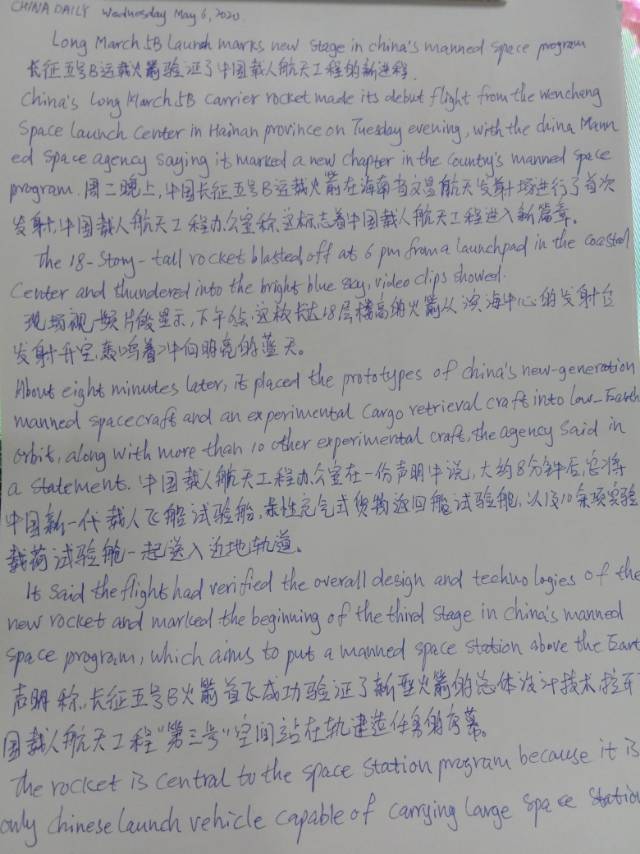 CHINA DAILY Wednesday May 6, 2020
Long March 5B Launch marks new stage in china's manned space program
长征五号B运载火箭验证了中国载人航天工程的新进程.
China's Long March 5B carrier rocket made its debut flight from the wenchang
Space Launch Center in Hainan province on Tuesday evening, with the china Mann
ed space agency saying it marked a new chapter in the Country's manned space
program. 周二晚上,中国长征五号B运载火箭在海南省文昌航天发射场进行了首次
发射,中国载人航天工程办公室称,这标志着中国载人航天工程进入新篇章。
The 18-Story-tall rocket blasted off at 6 pm from a launchpad in the coastal
Center and thundered into the bright blue sky, video clips showed.
现场视频片段显示,下午6点,这枚长达18层楼高的火箭从滨海中心的发射台
发射升空,轰鸣着冲向明亮的蓝天。
About eight minutes later, it placed the prototypes of china's new-generation
manned spacecraft and an experimental cargo retrieval craft into low-Earth
orbit, along with more than 10 other experimental craft, the agency said in
a statement. 中国载人航天工程办公室在一份声明中说,大约8分钟后,它将
中国新一代载人飞船试验船,柔性充气式货物返回舱试验舱,以及10余项实验
载荷试验舱一起送入近地轨道。
It said the flight had verified the overall design and technologies of the
new rocket and marked the beginning of the third stage in china's manned
space program, which aims to put a manned space station above the Eart
声明称,长征五号B火箭首飞成功验证了新型火箭的总体设计技术,拉开
国载人航天工程"第三号"空间站在轨建造任务的序幕。
The rocket is central to the space station program because it is
only chinese launch vehicle capable of carrying large space station